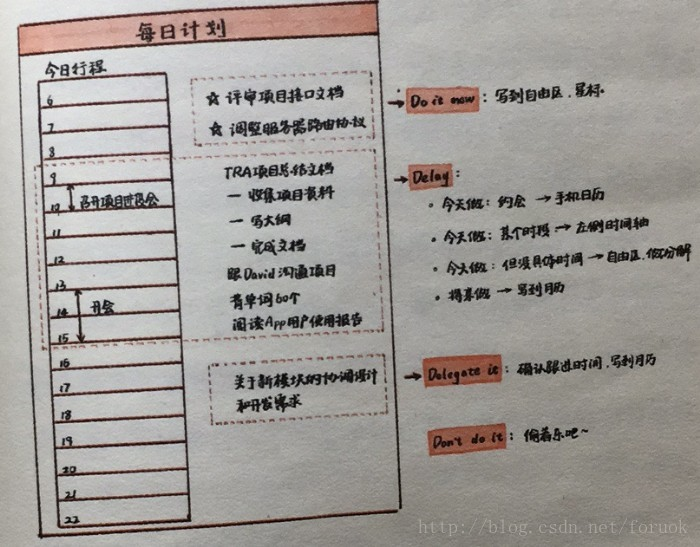 每日计划
今日行程
6
7
8
9
10 召开项目进度会
11
12
13
14 开会
15
16
17
18
19
20
21
22
☆ 评审项目接口文档
☆ 调整服务器路由协议
TRA项目总结文档
— 收集项目资料
— 写大纲
— 完成文档
跟David沟通项目
背单词60个
阅读App用户使用报告
关于新模块的协调设计
和开发需求
→ Do it now：写到自由区，星标。
→ Delay：
• 今天做：约会 → 手机日历
• 今天做：某个时段 → 左侧时间轴
• 今天做：但没具体时间 → 自由区，做分解
• 将来做 → 写到月历
→ Delegate it：确认跟进时间，写到月历
Don't do it：偷着乐吧~
http://blog.csdn.net/foruok